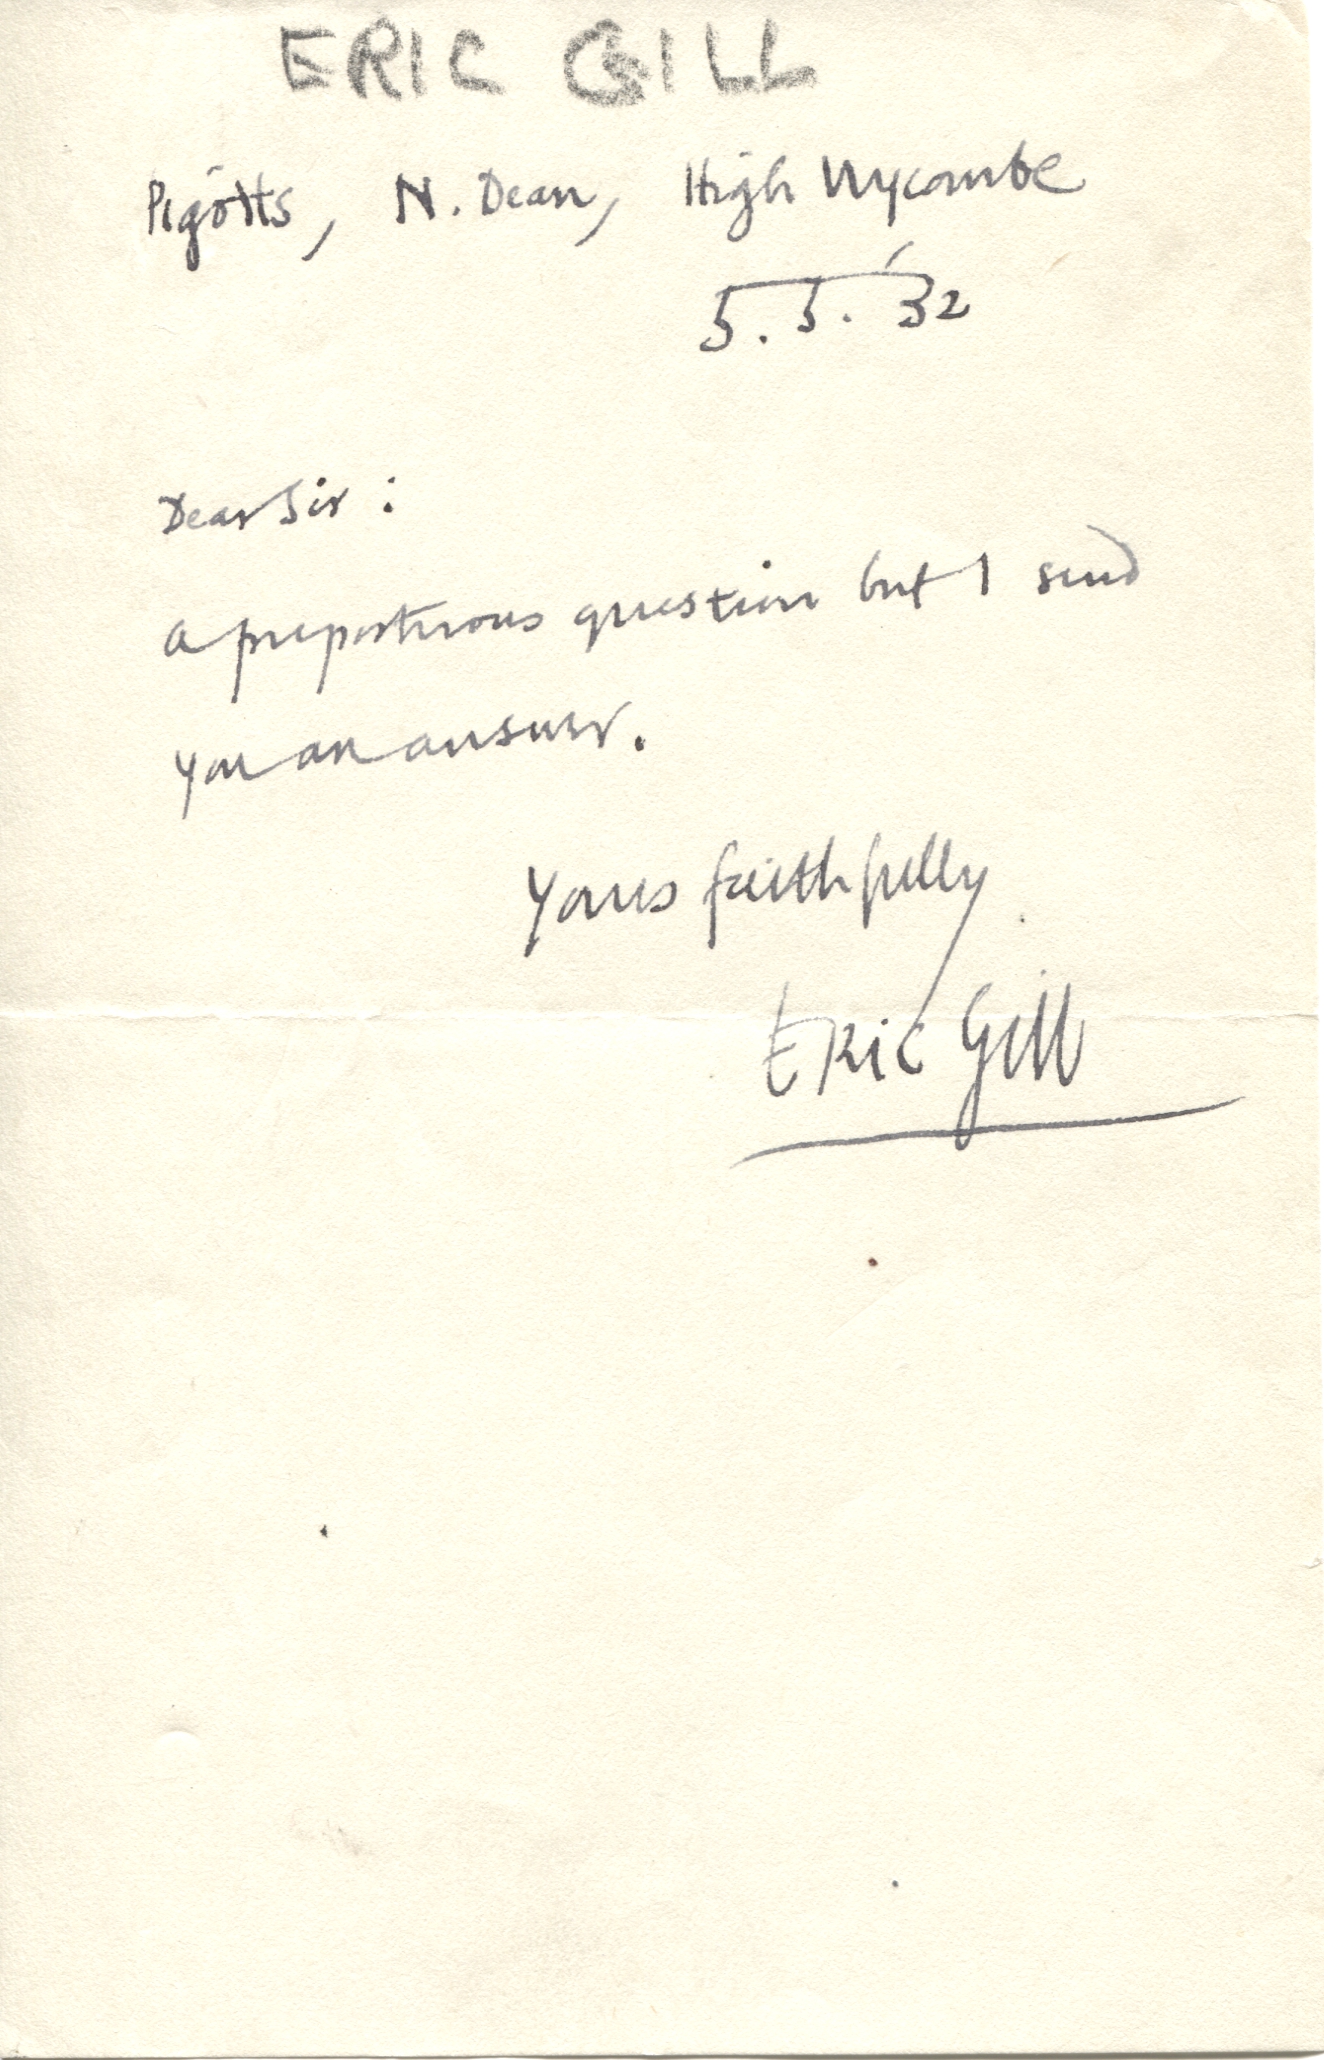 ERIC GILL
Pigotts, N. Dean, High Wycombe
5.5.'32
Dear Sir :
A preposterous question but I send
you an answer.
Yours faithfully
Eric Gill